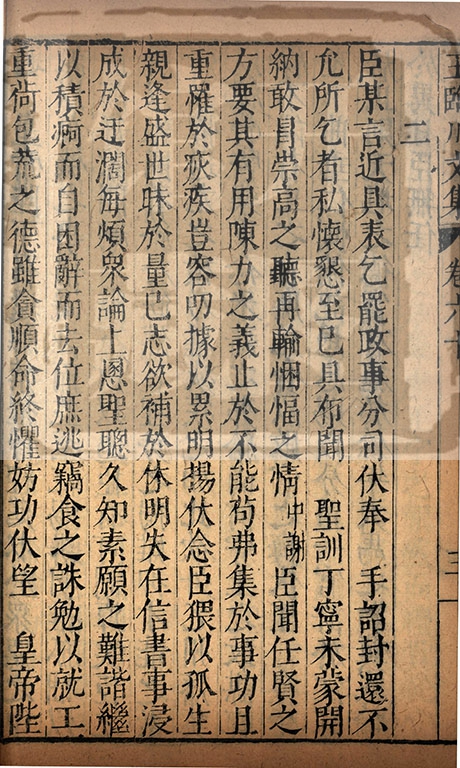 王臨川文集 卷六十 三
二
臣某言近具表乞罷政事分司伏奉 手詔封還不
允所乞者私懷懇至已具布聞 聖訓丁寧未蒙開
納敢冒崇高之聽再輸悃愊之情中謝臣聞任賢之
方要其有用陳力之義止於不能苟弗集於事功且
重罹於疢疾豈容叨據以累明揚伏念臣猥以孤生
親逢盛世昧於量已志欲補於休明失在信書事浸
成於迂濶每煩衆論上慁聖聰久知素願之難諧繼
以積痾而自困辭而去位庶逃竊食之誅勉以就工
重荷包荒之德雖貪順命終懼妨功伏望 皇帝陛